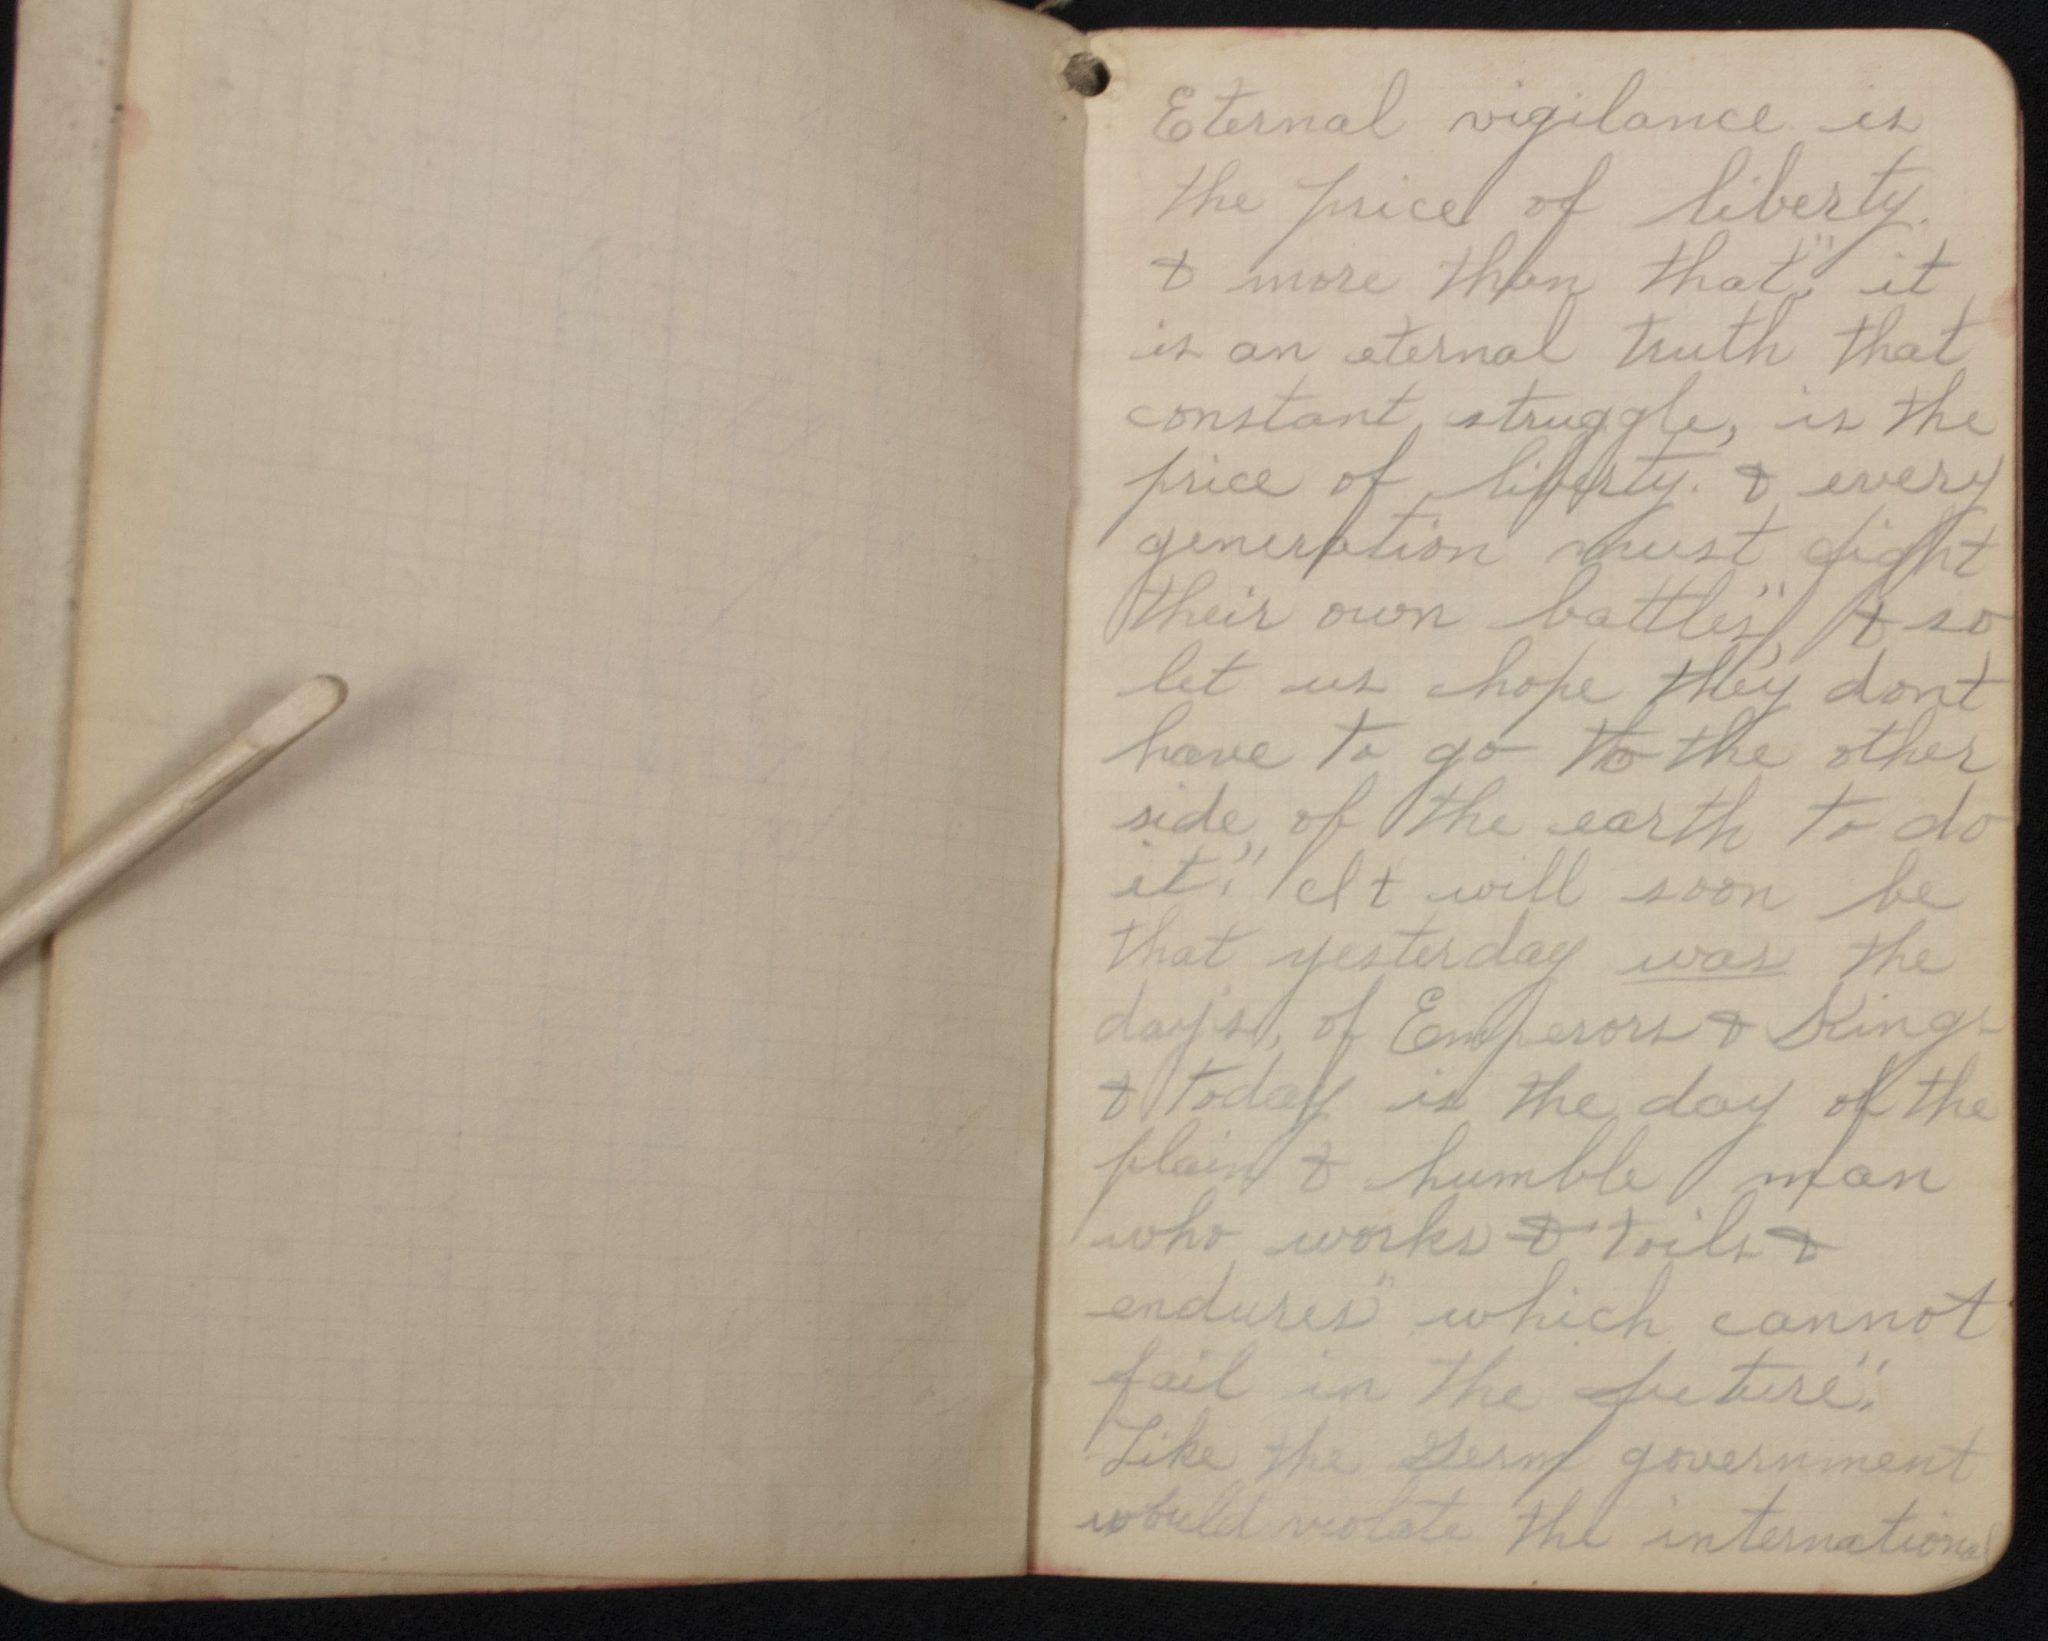 Eternal vigilance is
the price of liberty.
& more than that", it
is an eternal truth that
constant struggle, is the
price of liberty. & every
generation must fight
their own battles", & so
let us hope they dont
have to go to the other
side, of the earth to do
it." It will soon be
that yesterday was the
day's, of Emperors & Kings
& today is the day of the
plain & humble man
who works & toils &
endures" which cannot
fail in the future".
Like the Germ government
would violate the international